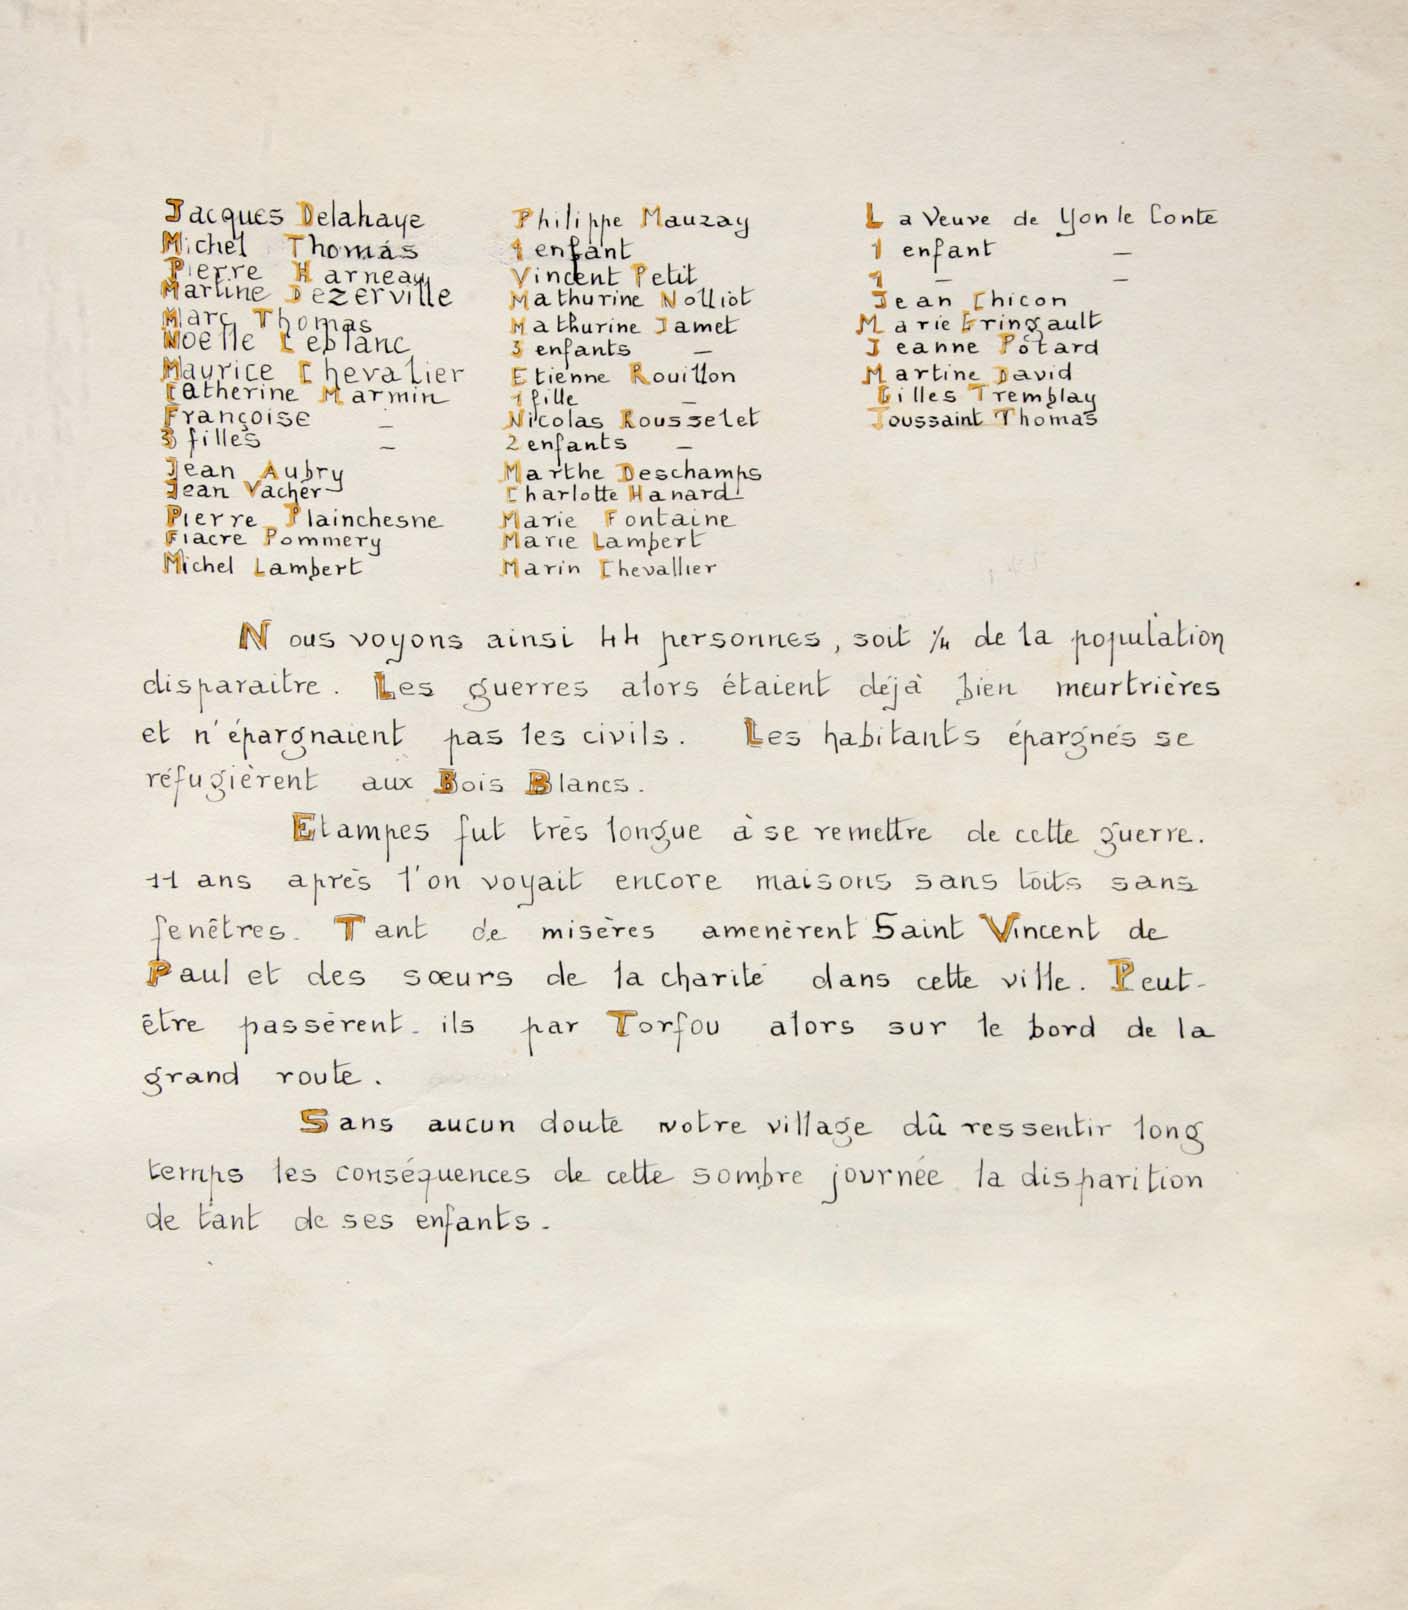 Jacques Delahaye
Michel Thomas
Pierre Harneau
Martine Dezerville
Marc Thomas
Noelle Leblanc
Maurice Chevalier
Catherine Marmin
Françoise –
3 filles –
Jean Aubry
Jean Vacher
Pierre Plainchesne
Fiacre Pommery
Michel Lambert
Philippe Mauzay
1 enfant
Vincent Petit
Mathurine Nolliot
Mathurine Jamet
3 enfants –
Etienne Rouillon
1 fille –
Nicolas Rousselet
2 enfants –
Marthe Deschamps
Charlotte Hanard
Marie Fontaine
Marie Lambert
Marin Chevallier
La Veuve de Yon le Conte
1 enfant –
1 – –
Jean Chicon
Marie Gringault
Jeanne Potard
Martine David
Gilles Tremblay
Toussaint Thomas
Nous voyons ainsi 44 personnes, soit 1/4 de la population
disparaitre. Les guerres alors étaient déjà bien meurtrières
et n'épargnaient pas les civils. Les habitants épargnés se
réfugièrent aux Bois Blancs.
Etampes fut très longue à se remettre de cette guerre.
11 ans après l'on voyait encore maisons sans toits sans
fenêtres. Tant de misères amenèrent Saint Vincent de
Paul et des sœurs de la charité dans cette ville. Peut-
être passèrent-ils par Torfou alors sur le bord de la
grand route.
Sans aucun doute notre village dû ressentir long
temps les conséquences de cette sombre journée la disparition
de tant de ses enfants.